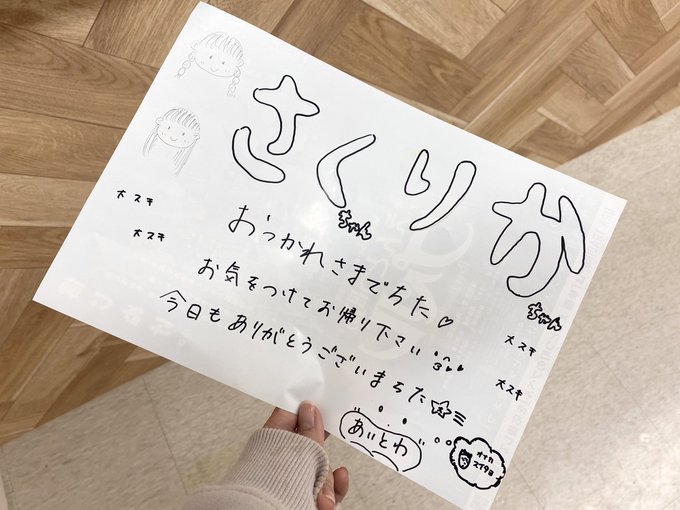 さくりか
ちゃん
ちゃん
大スキ
大スキ
おつかれさまでちた♡
お気をつけてお帰り下さい
今日もありがとうございまちた☆
大スキ
大スキ
あいとわ
オナカ
スイタヨ